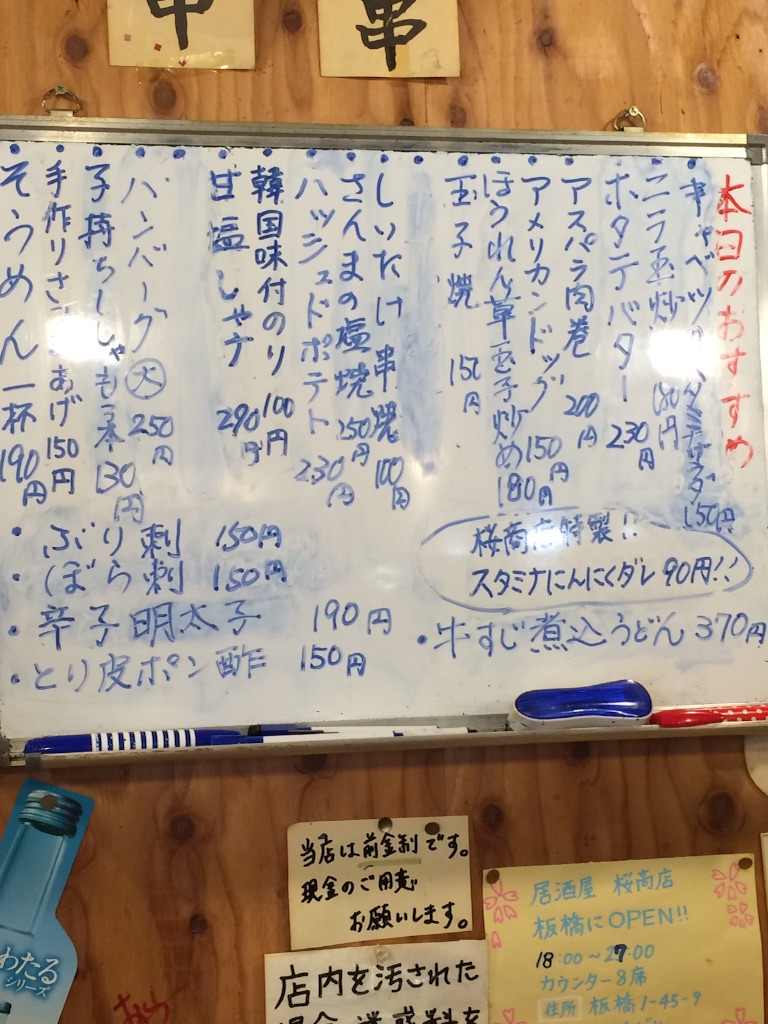 串
本日のおすすめ
キャベツのスタミナサラダ 150円
ニラ玉炒 180円
ホタテバター 230円
アスパラ肉巻 200円
アメリカンドッグ 150円
ほうれん草玉子炒め 180円
玉子焼 150円
しいたけ串焼 100円
さんまの塩焼 250円
ハッシュドポテト 230円
韓国味付のり 100円
甘塩しゃけ 290円
ハンバーグ 大 250円
子持ちししゃも 130円
手作りさつあげ 150円
そうめん一杯 190円
・ぶり刺 150円
・ぼら刺 150円
・辛子明太子 190円
・とり皮ポン酢 150円
桜商店特製!!
スタミナにんにくダレ 90円!!
・牛すじ煮込うどん 370円
当店は前金制です。
現金のご用意
お願いします。
店内を汚された
居酒屋 桜商店
板橋にOPEN!!
18:00〜27:00
カウンター8席
住所 板橋1-45-9
わたる
シリーズ